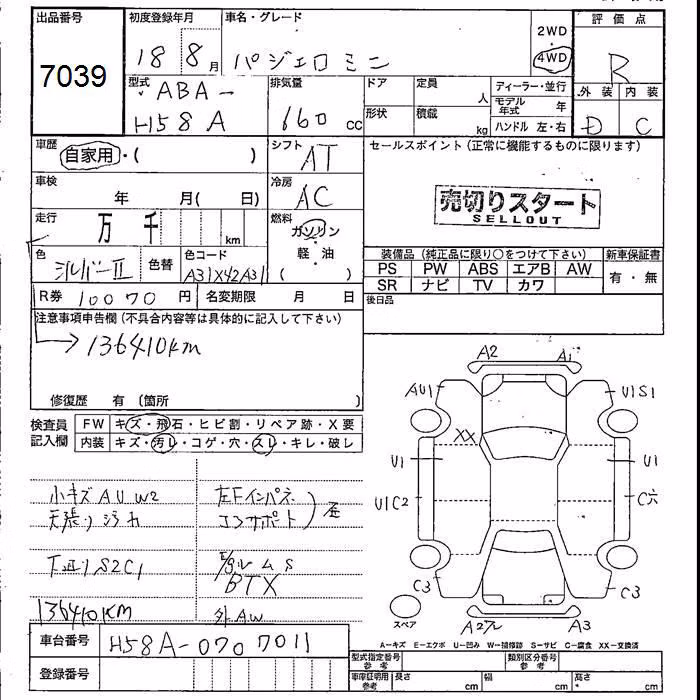 出品番号
7039
初度登録年月
18 8月
車名・グレード
パジェロミニ
2WD
4WD
評価点
R
外装 内装
D C
型式
ABA-
H58A
排気量
660 cc
ドア
定員
人
形状
積載
kg
ディーラー・並行
モデル年式 年
ハンドル 左・右
車歴
自家用・( )
シフト
AT
セールスポイント(正常に機能するものに限ります)
車検
年 月( 日)
冷房
AC
売切りスタート
SELLOUT
走行
万 千 km
燃料
ガソリン
・
軽・油
( )
色
シルバーII
色替
色コード
A31X42A31
装備品(純正品に限り○をつけて下さい)
新車保証書
PS PW ABS エアB AW
SR ナビ TV カワ
有・無
R券 10070円
名変期限 月 日
後日品
注意事項申告欄(不具合内容等は具体的に記入して下さい)
136410km
修復歴 有(箇所 )
検査員
記入欄
FW キズ・飛石・ヒビ割・リペア跡・X要
内装 キズ・汚レ・コゲ・穴・スレ・キレ・破レ
小キズAUW2
天張り汚れ
左Fインパネ
コアサポート
S2C1
BTX
136410KM
外AW
A2 A1
AU1 U1S1
XX
U1 U1
U1C2 C穴
C3 C3
スペア
A3
A-キズ E-エクボ U-凹み W-補修跡 S-サビ C-腐食 XX-交換済
車台番号
H58A-0707011
登録番号
型式指定番号
参考
類別区分番号
参考
車庫証明用
参考
長さ cm
幅 cm
高さ cm